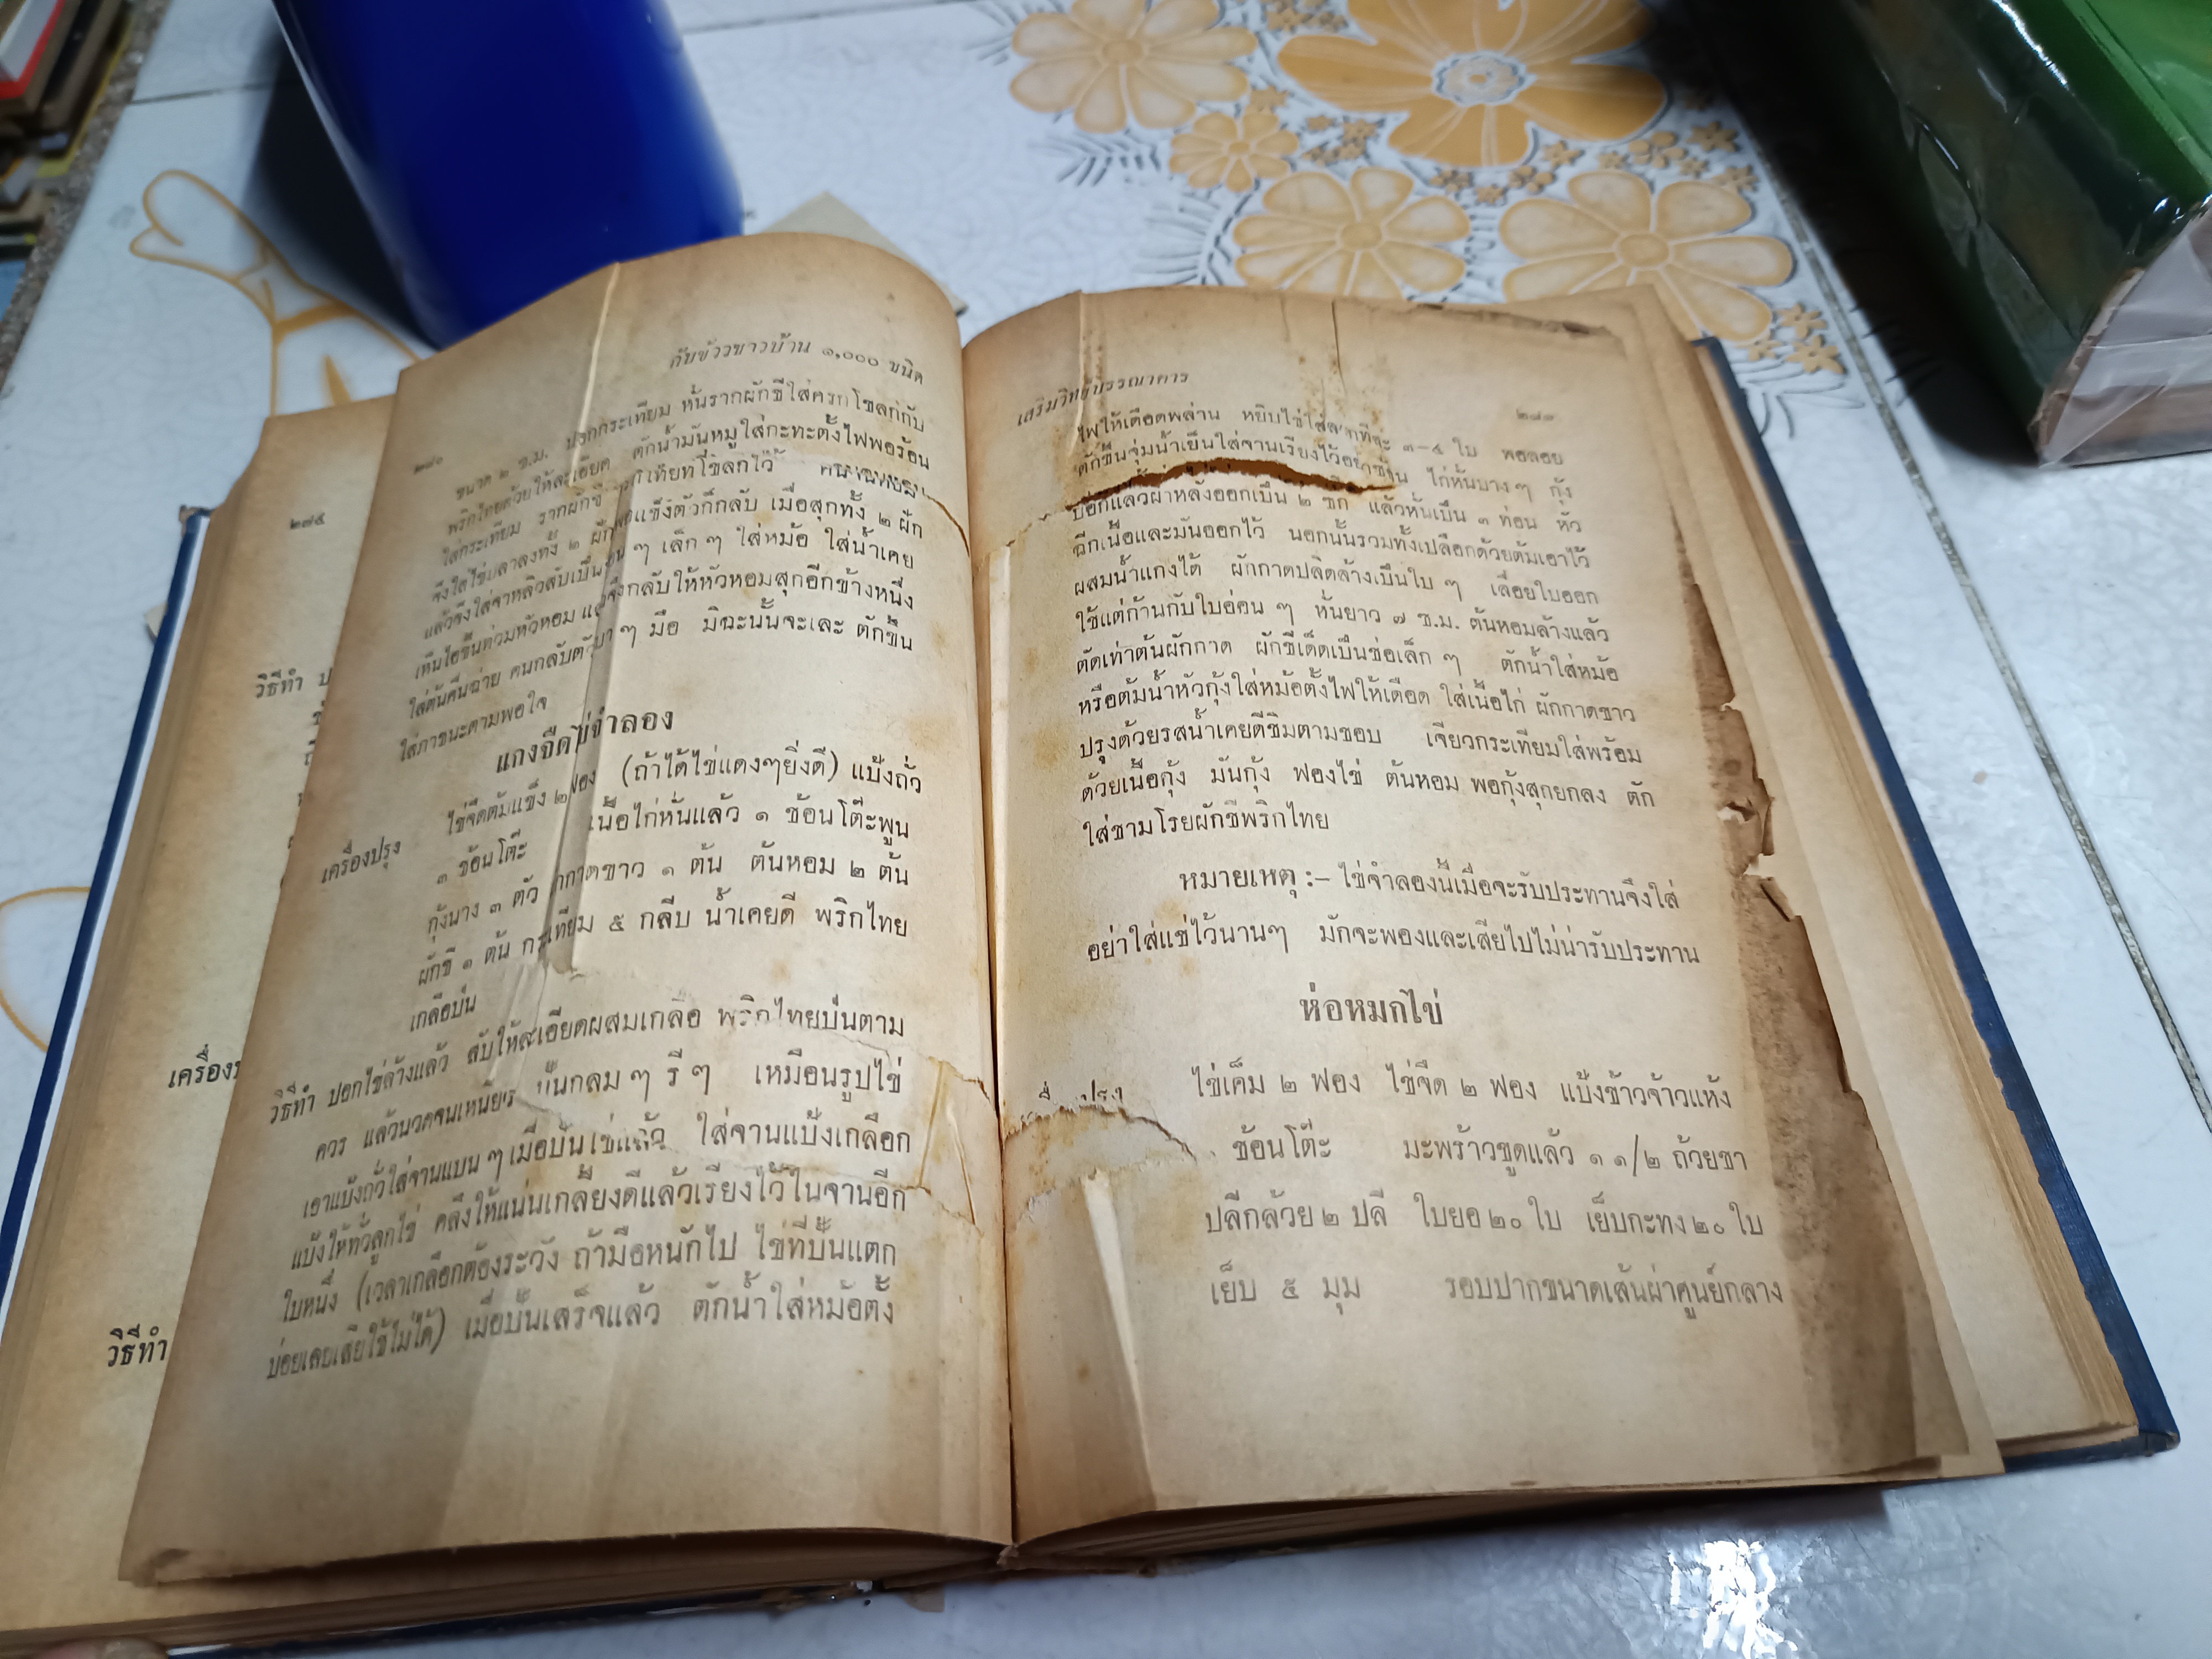 ๒๗๔
วิธีทำ
เครื่อง
วิธีทำ
๒๘๐
กับข้าวชาวบ้าน ๑,๐๐๐ ชนิด
ขนาด ๒ ซ.ม. ปอกกระเทียม หั่นรากผักชีใส่ครกโขลกกับ
พริกไทยด้วยให้ละเอียด ตักน้ำมันหมูใส่กะทะตั้งไฟพอร้อน
ใส่กระเทียม รากผักชี ที่โขลกไว้
จึงใส่ไข่ปลาลงทั้ง ๒ ฝัก แข็งตัวก็กลับ เมื่อสุกทั้ง ๒ ฝัก
แล้วจึงใส่จาหลิวสับเป็น ๆ เล็ก ๆ ใส่หม้อ ใส่น้ำเคย
เห็นไอขึ้นท่วมหัวหอม แล้วจึงกลับให้หัวหอมสุกอีกข้างหนึ่ง
ใส่ต้นคื่นฉ่าย คนกลับตัวเบา ๆ มือ มิฉะนั้นจะเละ ตักขึ้น
ใส่ภาชนะตามพอใจ
แกงจืดไข่จำลอง
เครื่องปรุง ไข่จืดต้มแข็ง ๒ ฟอง (ถ้าได้ไข่แดงๆยิ่งดี) แป้งถั่ว
๓ ช้อนโต๊ะ เนื้อไก่หั่นแล้ว ๑ ช้อนโต๊ะพูน
กุ้งนาง ๓ ตัว ผักกาดขาว ๑ ต้น ต้นหอม ๒ ต้น
ผักชี ๑ ต้น กระเทียม ๕ กลีบ น้ำเคยดี พริกไทย
เกลือป่น
วิธีทำ ปอกไข่ล้างแล้ว สับให้ละเอียดผสมเกลือ พริกไทยป่นตาม
ควร แล้วนวดจนเหนียว ปั้นกลม ๆ รี ๆ เหมือนรูปไข่
เอาแป้งถั่วใส่จานแบน ๆ เมื่อปั้นไข่แล้ว ใส่จานแป้งเกลือก
แป้งให้ทั่วลูกไข่ คลึงให้แน่นเกลี้ยงดีแล้วเรียงไว้ในจานอีก
ใบหนึ่ง (เวลาเกลือกต้องระวัง ถ้ามือหนักไป ไข่ที่ปั้นแตก
บ่อยเลยเสียใช้ไม่ได้) เมื่อปั้นเสร็จแล้ว ตักน้ำใส่หม้อตั้ง
เสริมวิทย์บรรณาคาร
๒๘๑
ไฟให้เดือดพล่าน หยิบไข่ใส่ลงทีละ ๓-๔ ใบ พอลอย
ตักขึ้นจุ่มน้ำเย็นใส่จานเรียงไว้อย่าซ้อน ไก่หั่นบาง ๆ กุ้ง
ปอกแล้วผ่าหลังออกเป็น ๒ ซีก แล้วหั่นเป็น ๓ ท่อน หัว
ฉีกเนื้อและมันออกไว้ นอกนั้นรวมทั้งเปลือกด้วยต้มเอาไว้
ผสมน้ำแกงได้ ผักกาดปลิดล้างเป็นใบ ๆ เลื่อยใบออก
ใช้แต่ก้านกับใบอ่อน ๆ หั่นยาว ๗ ซ.ม. ต้นหอมล้างแล้ว
ตัดเท่าต้นผักกาด ผักชีเด็ดเป็นช่อเล็ก ๆ ตักน้ำใส่หม้อ
หรือต้มน้ำหัวกุ้งใส่หม้อตั้งไฟให้เดือด ใส่เนื้อไก่ ผักกาดขาว
ปรุงด้วยรสน้ำเคยดีชิมตามชอบ เจียวกระเทียมใส่พร้อม
ด้วยเนื้อกุ้ง มันกุ้ง ฟองไข่ ต้นหอม พอกุ้งสุกยกลง ตัก
ใส่ชามโรยผักชีพริกไทย
หมายเหตุ :– ไข่จำลองนี้เมื่อจะรับประทานจึงใส่
อย่าใส่แช่ไว้นานๆ มักจะพองและเสียไปไม่น่ารับประทาน
ห่อหมกไข่
ปรุง ไข่เค็ม ๒ ฟอง ไข่จืด ๒ ฟอง แป้งข้าวจ้าวแห้ง
ช้อนโต๊ะ มะพร้าวขูดแล้ว ๑ ๑/๒ ถ้วยชา
ปลีกล้วย ๒ ปลี ใบยอ ๒๐ ใบ เย็บกะทง ๒๐ ใบ
เย็บ ๕ มุม รอบปากขนาดเส้นผ่าศูนย์กลาง